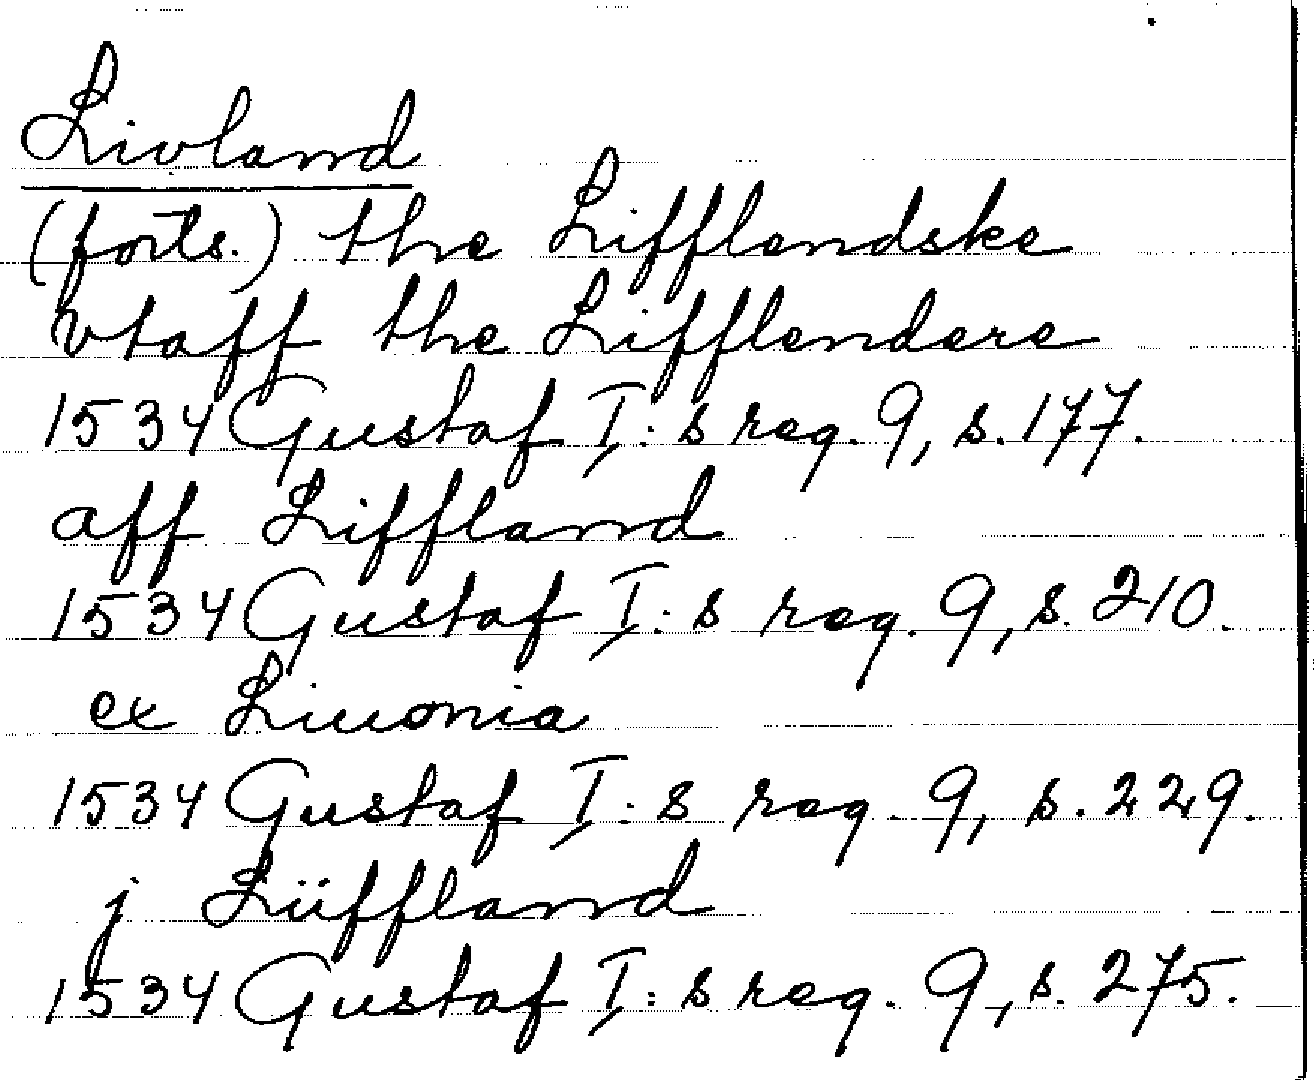 Livland
(forts.) the Lifflendske
vtaff the Lifflendere
1534 Gustaf I:s reg. 9, s. 177.
aff Liffland
1534 Gustaf I:s reg. 9, s. 210.
ex Liuonia
1534 Gustaf I:s reg. 9, s. 229.
j Lüffland
1534 Gustaf I:s reg. 9, s. 275.